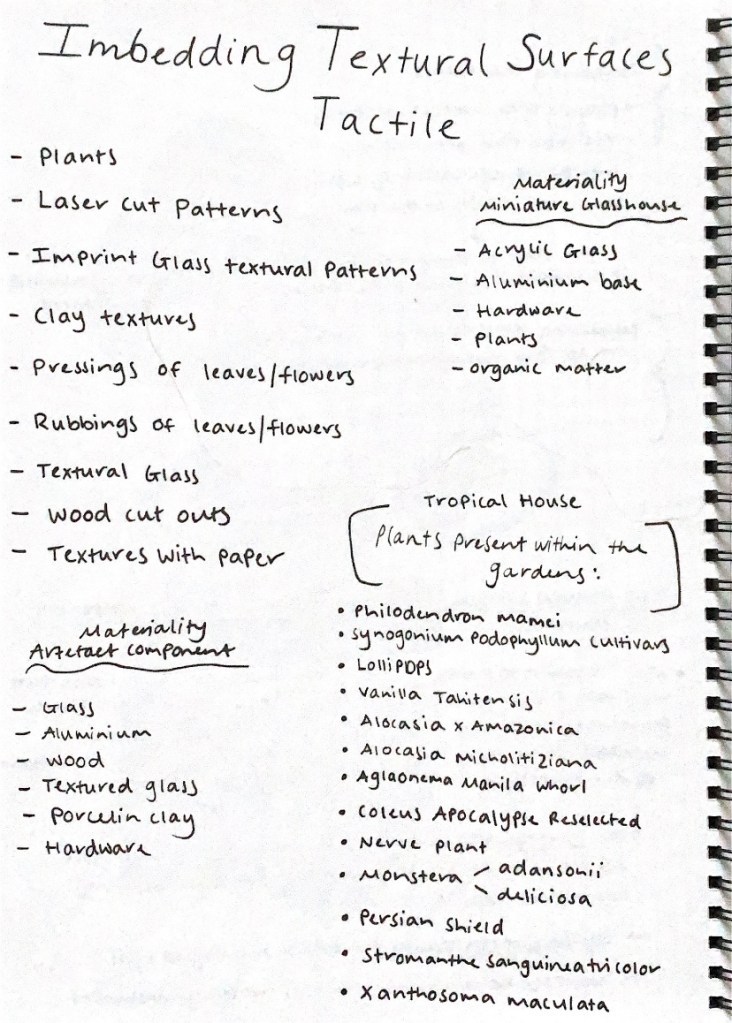 Imbedding Textural Surfaces
Tactile
- Plants
- Laser cut Patterns
- Imprint Glass textural Patterns
- Clay textures
- Pressings of leaves/flowers
- Rubbings of leaves/flowers
- Textural Glass
- Wood cut outs
- Textures with paper
Materiality
Miniature Glasshouse
- Acrylic Glass
- Aluminium base
- Hardware
- Plants
- organic matter
Materiality
Artefact component
- Glass
- Aluminium
- Wood
- Textured glass
- Porcelin clay
- Hardware
Tropical House
Plants present within the
gardens:
• Philodendron mamei
• Synogonium Podophyllum cultivars
• Lollipops
• Vanilla Tahitensis
• Alocasia x Amazonica
• Alocasia Micholitiziana
• Aglaonema Manila Whorl
• Coleus Apocalypse Reselected
• Nerve plant
• Monstera adansonii
deliciosa
• Persian Shield
• Stromanthe sanguinea tricolor
• Xanthosoma maculata